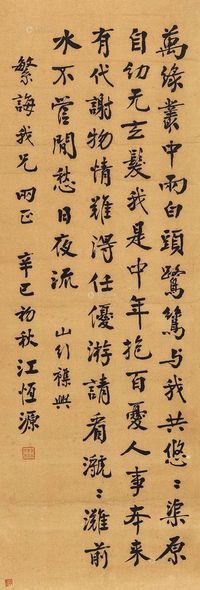 萬綠叢中兩白頭鷺鷥与我共悠〻渠原
自幼无玄髮我是中年抱百憂人事本来
有代謝物情難得任優游請看濺〻灘前
水不管閒愁日夜流 山行襍興
繁誨我兄雨正 辛巳初秋江恆源